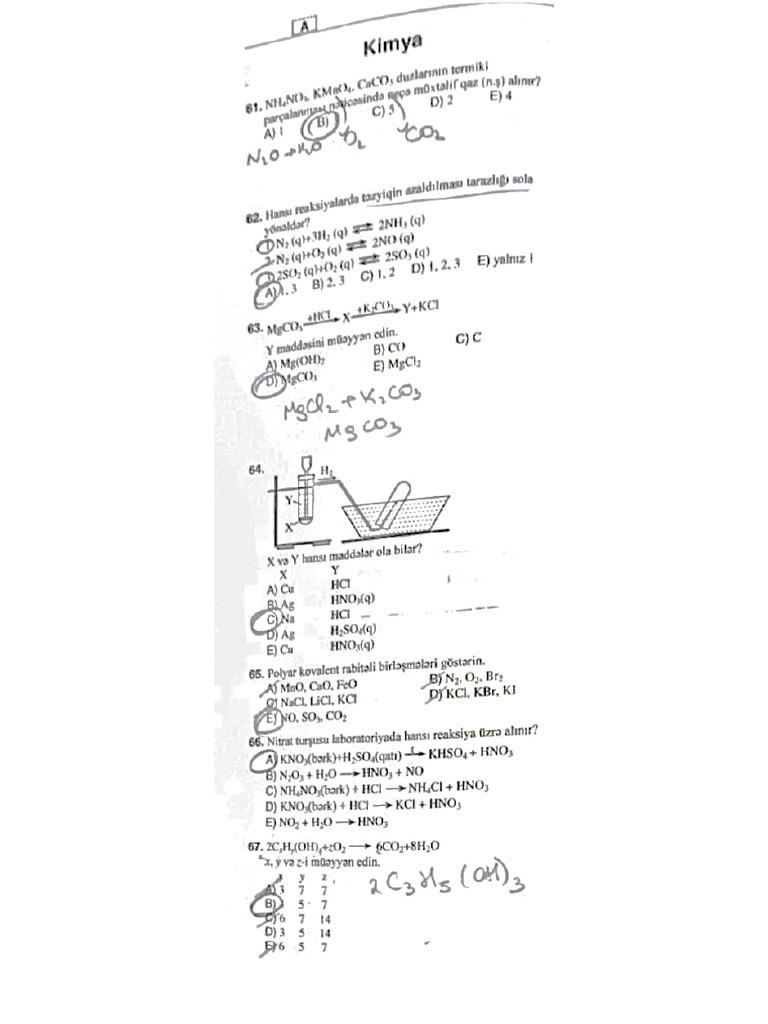 A
Kimya
61. NH₄NO₃, KMnO₄, CaCO₃ duzlarının termiki
parçalanması nəticəsində neçə müxtəlif qaz (n.ş) alınır?
A) 1 B) C) 5 D) 2 E) 4
N₂O + H₂O O₂ CO₂
62. Hansı reaksiyalarda təzyiqin azaldılması tarazlığı sola
yönəldər?
1 N₂ (q)+3H₂ (q) ⇄ 2NH₃ (q)
2 N₂ (q)+O₂ (q) ⇄ 2NO (q)
2SO₂ (q)+O₂ (q) ⇄ 2SO₃ (q)
A) 1, 3 B) 2, 3 C) 1, 2 D) 1, 2, 3 E) yalnız 1
63. MgCO₃ +HCl → X +K₂CO₃ → Y+KCl
Y maddəsini müəyyən edin.
A) Mg(OH)₂ B) CO C) C
D) MgCO₃ E) MgCl₂
MgCl₂ + K₂CO₃
MgCO₃
64.
H₂
Y
X
X və Y hansı maddələr ola bilər?
X Y
A) Cu HCl
B) Ag HNO₃(q)
C) Na HCl
D) Ag H₂SO₄(q)
E) Cu HNO₃(q)
65. Polyar kovalent rabitəli birləşmələri göstərin.
A) MnO, CaO, FeO B) N₂, O₂, Br₂
C) NaCl, LiCl, KCl D) KCl, KBr, KI
E) NO, SO₃, CO₂
66. Nitrat turşusu laboratoriyada hansı reaksiya üzrə alınır?
A) KNO₃(bərk)+H₂SO₄(qatı) t→ KHSO₄ + HNO₃
B) N₂O₃ + H₂O → HNO₃ + NO
C) NH₄NO₃(bərk) + HCl → NH₄Cl + HNO₃
D) KNO₃(bərk) + HCl → KCl + HNO₃
E) NO₂ + H₂O → HNO₃
67. 2CₓHᵧ(OH)₃+zO₂ → 6CO₂+8H₂O
x, y və z-i müəyyən edin.
x y z
A) 3 7 7
B) 5 7
C) 6 7 14
D) 3 5 14
E) 6 5 7
2C₃H₅(OH)₃